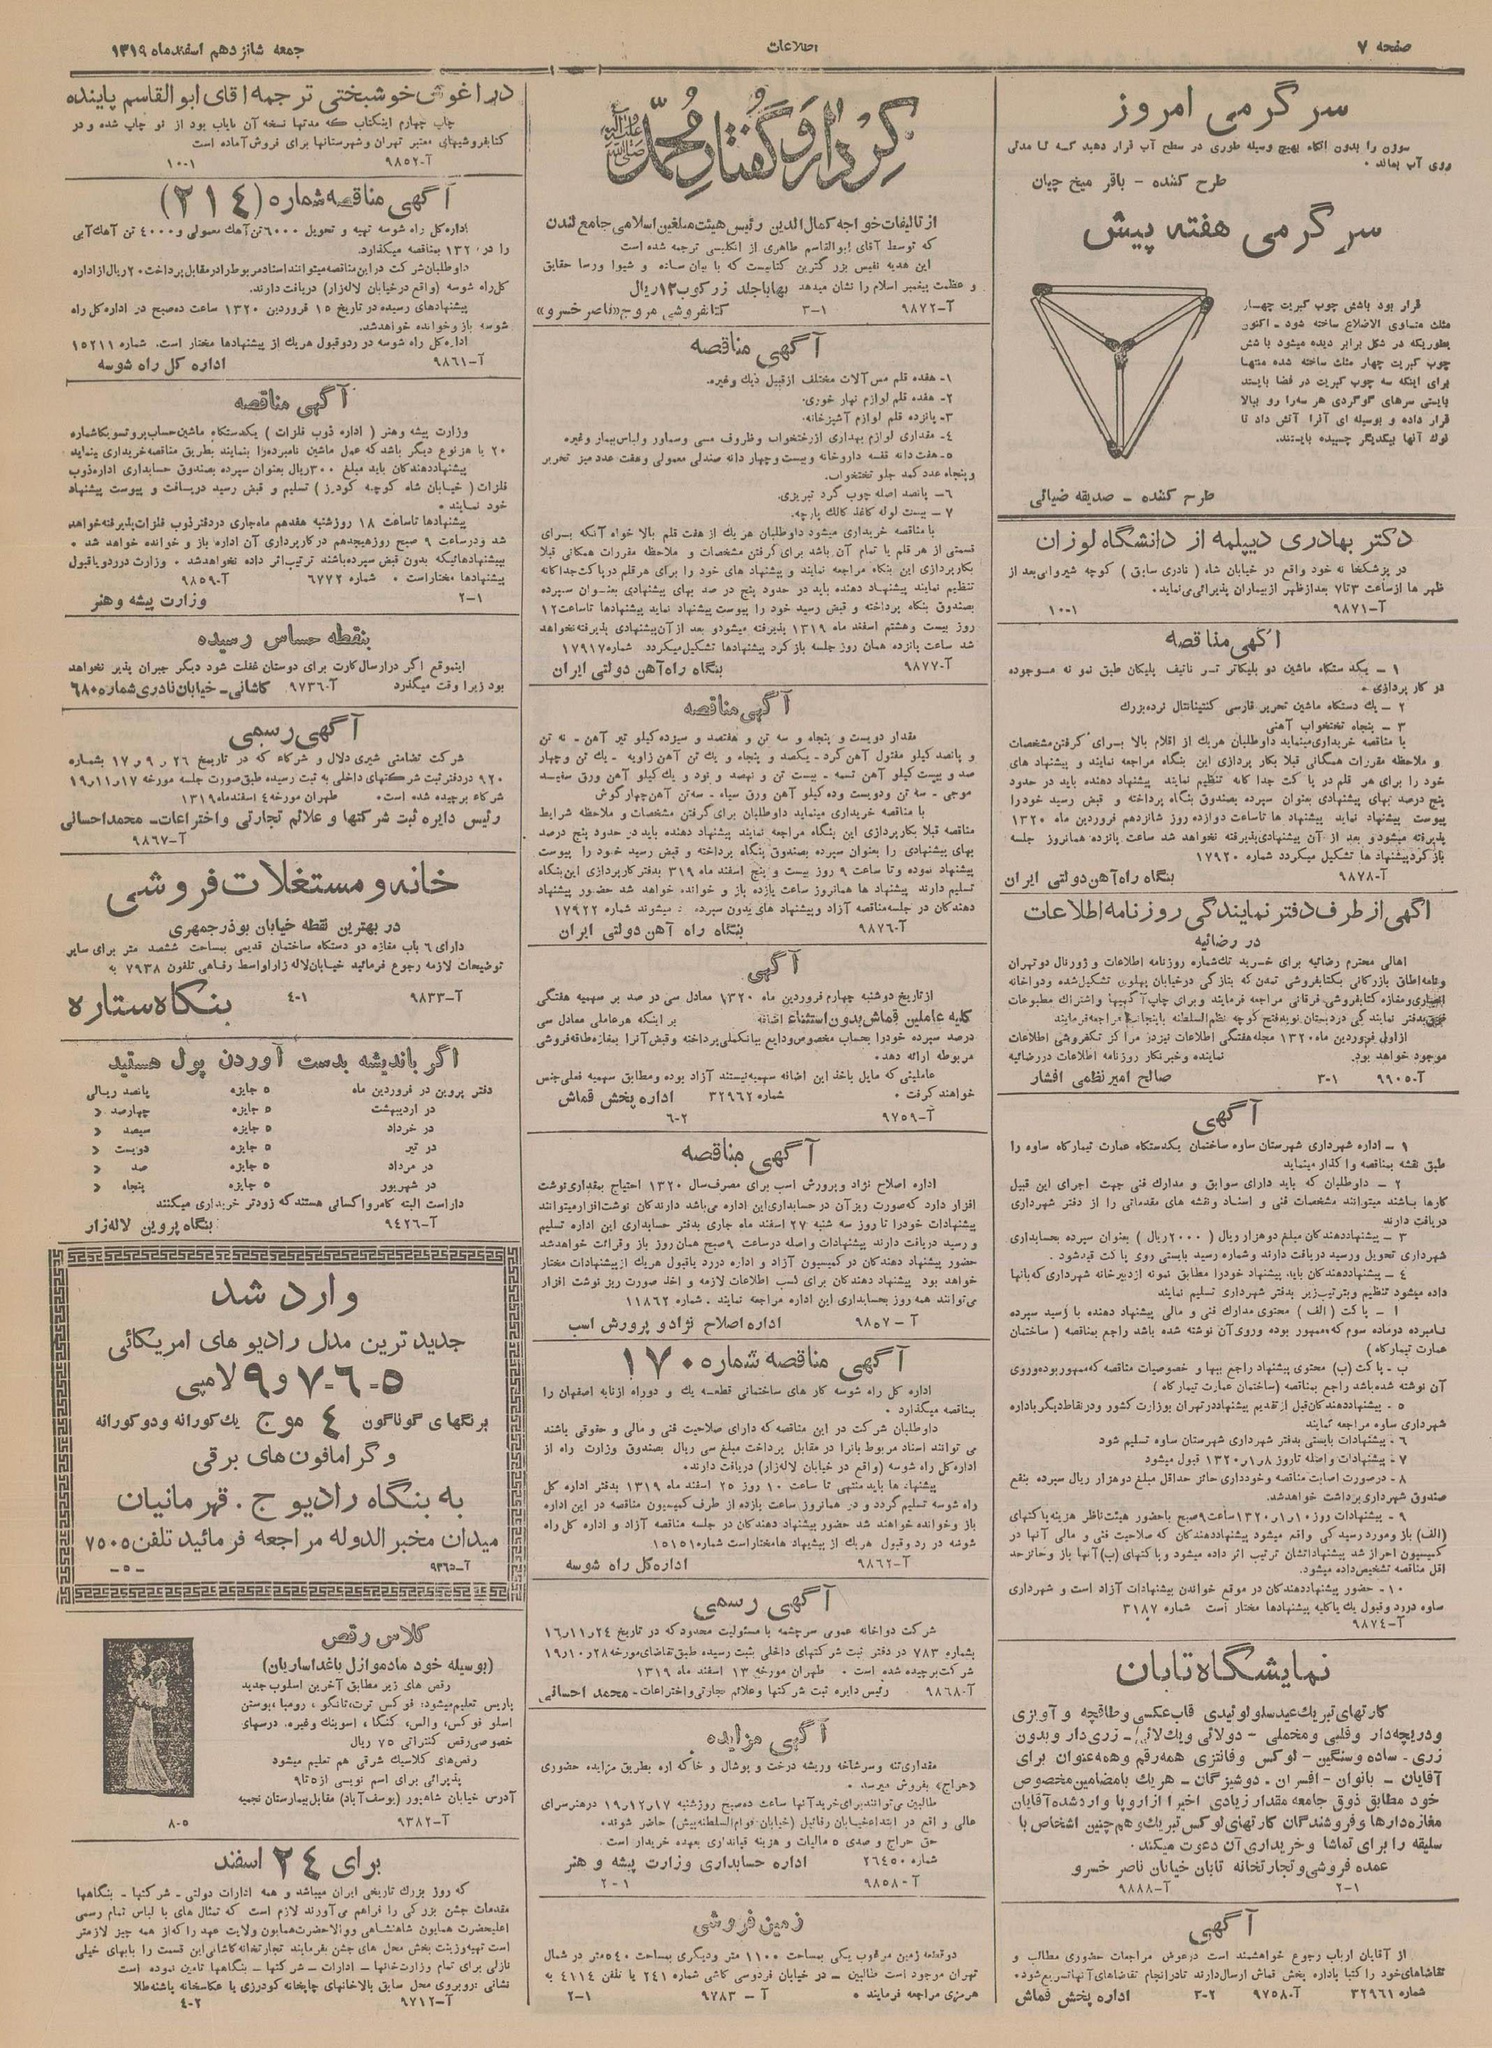 صفحه ۷
اطلاعات
جمعه شانزدهم اسفندماه ۱۳۱۹
سرگرمی امروز
سوزن را بدون اتکاء بهیچ وسیله طوری در سطح آب قرار دهید که تا مدتی
روی آب بماند .
طرح کننده - باقر میخ چیان
سرگرمی هفته پیش
قرار بود باشش چوب کبریت چهار
مثلث متساوی الاضلاع ساخته شود - اکنون
بطوریکه در شکل برابر دیده میشود با شش
چوب کبریت چهار مثلث ساخته شده منتها
برای اینکه سه چوب کبریت در فضا بایستد
بایستی سرهای گوگردی هر سه را رو ببالا
قرار داده و بوسیله ای آنرا آتش داد تا
نوک آنها بیکدیگر چسبیده بایستند.
طرح کننده - صدیقه ضیائی
دکتر بهادری دیپلمه از دانشگاه لوزان
در پزشکخانه خود واقع در خیابان شاه ( نادری سابق ) کوچه شیروانی بعد از
ظهر ها از ساعت ۳ تا ۷ بعد از ظهر از بیماران پذیرائی می نماید.
آ-۹۸۷۱ ۱-۱۰
آگهی مناقصه
۱ - یکدستگاه ماشین دو پلیکاتر تسر ناتیف پلیکان طبق نمونه موجوده
در کار پردازی .
۲ - یک دستگاه ماشین تحریر فارسی کنتیننتال نرده بزرگ
۳ - پنجاه تختخواب آهنی
با مناقصه خریداری مینماید داوطلبان هریک از اقلام بالا برای گرفتن مشخصات
و ملاحظه مقررات همگانی قبلا بکار پردازی این بنگاه مراجعه نمایند و پیشنهاد های
خود را برای هر قلم در پاکت جداگانه تنظیم نمایند پیشنهاد دهنده باید در حدود
پنج درصد بهای پیشنهادی بعنوان سپرده بصندوق بنگاه پرداخته و قبض رسید خود را
پیوست پیشنهاد نماید پیشنهاد ها تا ساعت دوازده روز شانزدهم فروردین ماه ۱۳۲۰
پذیرفته میشود و بعد از آن پیشنهادی پذیرفته نخواهد شد ساعت پانزده همانروز جلسه
باز کرد پیشنهاد ها تشکیل میگردد شماره ۱۷۹۲۰
آ-۹۸۷۸ بنگاه راه آهن دولتی ایران
آگهی از طرف دفتر نمایندگی روزنامه اطلاعات
در رضائیه
اهالی محترم رضائیه برای خرید تک شماره روزنامه اطلاعات و ژورنال دو تهران
و نامه اطاق بازرگانی بکتابفروشی تمدن که بتازگی در خیابان پهلوی تشکیل شده و دواخانه
انصاری و مغازه کتابفروشی فرقانی مراجعه فرمایند و برای چاپ آگهیها و اشتراک مطبوعات
فوق بدفتر نمایندگی در دبستان نوبه فتح کوچه نظم السلطنه باینجانب مراجعه فرمایند
از اول فروردین ماه ۱۳۲۰ مجله هفتگی اطلاعات نیز در مراکز تکفروشی اطلاعات
موجود خواهد بود. نماینده و خبرنگار روزنامه اطلاعات در رضائیه
آ-۹۹۰۵ ۱-۳ صالح امیر نظمی افشار
آگهی
۱ - اداره شهرداری شهرستان ساوه ساختمان یکدستگاه عمارت تیمارگاه ساوه را
طبق نقشه بمناقصه واگذار مینماید
۲ - داوطلبان که باید دارای سوابق و مدارک فنی جهت اجرای این قبیل
کارها باشند میتوانند مشخصات فنی و اسناد و نقشه های مقدماتی را از دفتر شهرداری
دریافت دارند
۳ - پیشنهاددهندگان مبلغ دوهزار ریال ( ۲۰۰۰ ریال ) بعنوان سپرده بحسابداری
شهرداری تحویل و رسید دریافت دارند و شماره رسید بایستی روی پاکت قید شود .
۴ - پیشنهاددهندگان باید پیشنهاد خود را مطابق نمونه از دبیرخانه شهرداری که بآنها
داده میشود تنظیم و بترتیب زیر بدفتر شهرداری تسلیم نمایند
ا - پاکت ( الف ) محتوی مدارک فنی و مالی پیشنهاد دهنده با رسید سپرده
نامبرده در ماده سوم که ممهور بوده و روی آن نوشته شده باشد راجع بمناقصه ( ساختمان
عمارت تیمارگاه )
ب - پاکت (ب) محتوی پیشنهاد راجع ببها و خصوصیات مناقصه که ممهور بوده و روی
آن نوشته شده باشد راجع بمناقصه (ساختمان عمارت تیمارگاه )
۵ - پیشنهاددهندگان قبل از تقدیم پیشنهاد در تهران بوزارت کشور و در نقاط دیگر باداره
شهرداری ساوه مراجعه نمایند
۶ - پیشنهادات بایستی بدفتر شهرداری شهرستان ساوه تسلیم شود
۷ - پیشنهادات واصله تا روز ۱۳۲۰/۱/۸ قبول میشود
۸ - در صورت اصابت مناقصه و خودداری حائز حداقل مبلغ دوهزار ریال سپرده بنفع
صندوق شهرداری برداشت خواهد شد.
۹ - پیشنهادات روز ۱۳۲۰/۱/۱۰ ساعت ۹ صبح با حضور هیئت ناظر هزینه پاکتهای
(الف) باز و مورد رسیدگی واقع میشود پیشنهاددهندگان که صلاحیت فنی و مالی آنها در
کمیسیون احراز شد پیشنهاداتشان ترتیب اثر داده میشود و پاکتهای (ب) آنها باز و حائز حد
اقل مناقصه تشخیص داده میشود.
۱۰ - حضور پیشنهاددهندگان در موقع خواندن پیشنهادات آزاد است و شهرداری
ساوه در رد و قبول یک یا کلیه پیشنهادها مختار است شماره ۳۱۸۷
آ-۹۸۷۴
نمایشگاه تابان
کارتهای تبریک عید سلولوئیدی قاب عکسی و طاقچه و آویزی
و دریچه دار و قلبی و مخملی - دولائی و یک لائی - زری دار و بدون
زری - ساده و سنگین - لوکس و فانتزی همه رقم و همه عنوان برای
آقایان - بانوان - افسران - دوشیزگان - هر یک با مضامین مخصوص
خود مطابق ذوق جامعه مقدار زیادی اخیرا از اروپا وارد شده آقایان
مغازه دارها و فروشندگان کارتهای لوکس تبریک و هم چنین اشخاص با
سلیقه را برای تماشا و خریداری آن دعوت میکند .
عمده فروشی و تجارتخانه تابان خیابان ناصر خسرو
۱-۲ آ-۹۸۸۸
آگهی
از آقایان ارباب رجوع خواهشمند است در عوض مراجعات حضوری مطالب و
تقاضاهای خود را کتبا باداره پخش قماش ارسال دارند تا در انجام تقاضاهای آنها تسریع شود.
شماره ۳۲۹۶۱ آ-۹۷۵۸ ۲-۳ اداره پخش قماش
کردار و گفتار محمد
صلی الله علیه و آله
از تالیفات خواجه کمال الدین رئیس هیئت مبلغین اسلامی جامع لندن
که توسط آقای ابوالقاسم طاهری از انگلیسی ترجمه شده است
این هدیه نفیس بزرگترین کتابیست که با بیان ساده و شیوا و رسا حقایق
و عظمت پیغمبر اسلام را نشان میدهد بها با جلد زرکوب ۱۲ ریال
آ-۹۸۷۲ ۱-۳ کتابفروشی مروج «ناصر خسرو»
آگهی مناقصه
۱- هفده قلم مس آلات مختلف از قبیل دیک و غیره.
۲- هفده قلم لوازم نهار خوری.
۳- پانزده قلم لوازم آشپزخانه.
۴- مقداری لوازم بهداری از رختخواب و ظروف مسی و سماور و لباس بیمار و غیره
۵- هفت دانه قفسه داروخانه و بیست و چهار دانه صندلی معمولی و هفت عدد میز تحریر
و پنجاه عدد کمد جلو تختخواب.
۶- پانصد اصله چوب گرد تبریزی.
۷- بیست لوله کاغذ کالک پارچه.
با مناقصه خریداری میشود داوطلبان هر یک از هفت قلم بالا خواه آنکه برای
قسمتی از هر قلم یا تمام آن باشد برای گرفتن مشخصات و ملاحظه مقررات همگانی قبلا
بکارپردازی این بنگاه مراجعه نمایند و پیشنهاد های خود را برای هر قلم در پاکت جداگانه
تنظیم نمایند پیشنهاد دهنده باید در حدود پنج در صد بهای پیشنهادی بعنوان سپرده
بصندوق بنگاه پرداخته و قبض رسید خود را پیوست پیشنهاد نماید پیشنهادها تا ساعت ۱۲
روز بیست و هشتم اسفند ماه ۱۳۱۹ پذیرفته میشود و بعد از آن پیشنهادی پذیرفته نخواهد
شد ساعت پانزده همان روز جلسه باز کرد پیشنهادها تشکیل میگردد شماره ۱۷۹۱۷
آ-۹۸۷۷ بنگاه راه آهن دولتی ایران
آگهی مناقصه
مقدار دویست و پنجاه و سه تن و هفتصد و سیزده کیلو تیر آهن - نه تن
و پانصد کیلو مفتول آهن گرد - یکصد و پنجاه و یک تن آهن زاویه - یک تن و چهار
صد و بیست کیلو آهن تسمه - بیست تن و نهصد و نود و یک کیلو آهن ورق سفید
موجی - سه تن و دویست و ده کیلو آهن ورق سیاه - سه تن آهن چهار گوش
با مناقصه خریداری مینماید داوطلبان برای گرفتن مشخصات و ملاحظه شرایط
مناقصه قبلا بکارپردازی این بنگاه مراجعه نمایند پیشنهاد دهنده باید در حدود پنج درصد
بهای پیشنهادی را بعنوان سپرده بصندوق بنگاه پرداخته و قبض رسید خود را پیوست
پیشنهاد نموده و تا ساعت ۹ روز بیست و پنج اسفند ماه ۳۱۹ بدفتر کارپردازی این بنگاه
تسلیم دارند پیشنهاد ها همانروز ساعت یازده باز و خوانده خواهد شد حضور پیشنهاد
دهندگان در جلسه مناقصه آزاد و پیشنهاد های بدون سپرده میشوند شماره ۱۷۹۲۲
آ-۹۸۷۶ بنگاه راه آهن دولتی ایران
آگهی
از تاریخ دوشنبه چهارم فروردین ماه ۱۳۲۰ معادل سی در صد بر سهمیه هفتگی
کلیه عاملین قماش بدون استثناء اضافه بر اینکه هر عاملی معادل سی
درصد سپرده خود را بحساب مخصوص ودایع ببانک ملی پرداخته و قبض آنرا بمغازه طاقه فروشی
مربوطه ارائه دهد.
عاملینی که مایل باخذ این اضافه سهمیه نیستند آزاد بوده و مطابق سهمیه فعلی جنس
خواهند گرفت . شماره ۳۲۹۶۲ اداره پخش قماش
آ-۹۷۵۹ ۲-۶
آگهی مناقصه
اداره اصلاح نژاد و پرورش اسب برای مصرف سال ۱۳۲۰ احتیاج بمقداری نوشت
افزار دارد که صورت ریز آن در حسابداری این اداره می باشد دارندگان نوشت افزار میتوانند
پیشنهادات خود را تا روز سه شنبه ۲۷ اسفند ماه جاری بدفتر حسابداری این اداره تسلیم
و رسید دریافت دارند پیشنهادات واصله در ساعت ۹ صبح همان روز باز و قرائت خواهد شد
حضور پیشنهاد دهندگان در کمیسیون آزاد و اداره در رد یا قبول هر یک از پیشنهادات مختار
خواهد بود پیشنهاد دهندگان برای کسب اطلاعات لازمه و اخذ صورت ریز نوشت افزار
می توانند همه روز بحسابداری این اداره مراجعه نمایند . شماره ۱۱۸۶۲
آ - ۹۸۵۷ اداره اصلاح نژاد و پرورش اسب
آگهی مناقصه شماره ۱۷۰
اداره کل راه شوسه کار های ساختمانی قطعه یک و دو راه ازنا به اصفهان را
بمناقصه میگذارد .
داوطلبان شرکت در این مناقصه که دارای صلاحیت فنی و مالی و حقوقی باشند
می توانند اسناد مربوط بآنرا در مقابل پرداخت مبلغ سی ریال بصندوق وزارت راه از
اداره کل راه شوسه (واقع در خیابان لاله زار) دریافت دارند.
پیشنهاد ها باید منتهی تا ساعت ۱۰ روز ۲۵ اسفند ماه ۱۳۱۹ بدفتر اداره کل
راه شوسه تسلیم گردد و در همانروز ساعت یازده از طرف کمیسیون مناقصه در این اداره
باز و خوانده خواهند شد حضور پیشنهاد دهندگان در جلسه مناقصه آزاد و اداره کل راه
شوسه در رد و قبول هر یک از پیشنهاد ها مختار است شماره ۱۵۱۵۱
آ-۹۸۶۲ اداره کل راه شوسه
آگهی رسمی
شرکت دواخانه عمومی سرچشمه با مسئولیت محدود که در تاریخ ۱۶/۱۱/۲۴
بشماره ۷۸۳ در دفتر ثبت شرکتهای داخلی بثبت رسیده طبق تقاضای مورخه ۱۹/۱۰/۲۸
شرکت برچیده شده است . طهران مورخه ۱۳ اسفند ماه ۱۳۱۹
آ-۹۸۶۸ رئیس دایره ثبت شرکتها و علائم تجارتی و اختراعات - محمد احسائی
آگهی مزایده
مقداری تنه و سرشاخه و ریشه درخت و پوشال و خاکه اره بطریق مزایده حضوری
«حراج» بفروش میرسد .
طالبین می توانند برای خرید آنها ساعت ده صبح روز شنبه ۱۹/۱۲/۱۷ در هنر سرای
عالی واقع در ابتداء خیابان رفائیل (خیابان قوام السلطنه پیش) حاضر شوند.
حق حراج و صدی ۵ مالیات و هزینه قپانداری بعهده خریدار است .
شماره ۲۶۴۵۰ اداره حسابداری وزارت پیشه و هنر
آ-۹۸۵۸ ۱-۲
زمین فروشی
دو قطعه زمین مرغوب یکی بمساحت ۱۱۰۰ متر و دیگری بمساحت ۵۴۰ متر در شمال
تهران موجود است طالبین - در خیابان فردوسی کاشی شماره ۲۴۱ یا تلفن ۴۱۱۴ به
هرمزی مراجعه فرمایند . آ - ۹۷۸۳ ۱-۲
در آغوش خوشبختی ترجمه آقای ابوالقاسم پاینده
چاپ چهارم اینکتاب که مدتها نسخه آن نایاب بود از نو چاپ شده و در
کتابفروشیهای معتبر تهران و شهرستانها برای فروش آماده است
آ-۹۸۵۲ ۱-۱۰
آگهی مناقصه شماره (۲۱۴)
اداره کل راه شوسه تهیه و تحویل ۶۰۰۰ تن آهک معمولی و ۴۰۰۰ تن آهک آبی
را در ۱۳۲ بمناقصه میگذارد.
داوطلبان شرکت در این مناقصه میتوانند اسناد مربوط را در مقابل پرداخت ۲۰ ریال از اداره
کل راه شوسه (واقع در خیابان لاله زار) دریافت دارند.
پیشنهادهای رسیده در تاریخ ۱۵ فروردین ۱۳۲۰ ساعت ده صبح در اداره کل راه
شوسه باز و خوانده خواهد شد.
اداره کل راه شوسه در رد و قبول هر یک از پیشنهادها مختار است. شماره ۱۵۲۱۱
آ-۹۸۶۱ اداره کل راه شوسه
آگهی مناقصه
وزارت پیشه و هنر ( اداره ذوب فلزات ) یکدستگاه ماشین حساب پروتسویکا شماره
۲۰ یا هر نوع دیگر باشد که عمل ماشین نامبرده را بنمایند بطریق مناقصه خریداری مینماید
پیشنهاددهندگان باید مبلغ ۳۰۰ ریال بعنوان سپرده بصندوق حسابداری اداره ذوب
فلزات ( خیابان شاه کوچه گودرز ) تسلیم و قبض رسید دریافت و پیوست پیشنهاد
خود نمایند .
پیشنهادها تا ساعت ۱۸ روز شنبه هفدهم ماه جاری در دفتر ذوب فلزات پذیرفته خواهد
شد و در ساعت ۹ صبح روز هیجدهم در کارپردازی آن اداره باز و خوانده خواهد شد .
بپیشنهادهائیکه بدون قبض سپرده باشند ترتیب اثر داده نخواهد شد . وزارت در رد و یا قبول
پیشنهادها مختار است . شماره ۶۷۷۲ آ-۹۸۵۹
۱-۲ وزارت پیشه و هنر
بنقطه حساس رسیده
اینموقع اگر در ارسال کارت برای دوستان غفلت شود دیگر جبران پذیر نخواهد
بود زیرا وقت میگذرد آ-۹۷۳۶ کاشانی - خیابان نادری شماره ۶۸۰
آگهی رسمی
شرکت تضامنی شیری دلال و شرکاء که در تاریخ ۱۷/۹/۲۶ بشماره
۹۲۰ در دفتر ثبت شرکتهای داخلی به ثبت رسیده طبق صورت جلسه مورخه ۱۹/۱۱/۱۷
شرکاء برچیده شده است . طهران مورخه ۴ اسفند ماه ۱۳۱۹
رئیس دایره ثبت شرکتها و علائم تجارتی و اختراعات - محمد احسائی
آ-۹۸۶۷
خانه و مستغلات فروشی
در بهترین نقطه خیابان بوذرجمهری
دارای ۶ باب مغازه دو دستگاه ساختمان قدیمی بمساحت ششصد متر برای سایر
توضیحات لازمه رجوع فرمائید خیابان لاله زار اواسط رفاهی تلفون ۷۹۳۸ به
آ-۹۸۳۳ ۱-۴ بنگاه ستاره
اگر باندیشه بدست آوردن پول هستید
دفتر پروین در فروردین ماه ۵ جایزه پانصد ریالی
در اردیبشت ۵ جایزه چهارصد »
در خرداد ۵ جایزه سیصد »
در تیر ۵ جایزه دویست »
در مرداد ۵ جایزه صد »
در شهریور ۵ جایزه پنجاه »
داراست البته کامروا کسانی هستند که زودتر خریداری میکنند
آ-۹۴۲۶ بنگاه پروین لاله زار
وارد شد
جدید ترین مدل رادیو های امریکائی
۵-۶-۷ و ۹ لامپی
برنگهای گوناگون ۴ موج یک کورانه و دو کورانه
و گرامافون های برقی
به بنگاه رادیو ج . قهرمانیان
میدان مخبر الدوله مراجعه فرمائید تلفن ۷۵۰۵
آ-۹۳۶۵ -۵-
کلاس رقص
(بوسیله خود مادموازل باغداساریان)
رقص های زیر مطابق آخرین اسلوب جدید
پاریس تعلیم میشود: فوکس ترت، تانگو ، رومبا، بوستن
اسلو فوکس، والس، کنگا ، اسوینک و غیره. درسهای
خصوصی رقص کنتراتی ۷۵ ریال
رقص های کلاسیک شرقی هم تعلیم میشود
پذیرائی برای اسم نویسی از ۵ تا ۹
آدرس خیابان شاهپور (یوسف آباد) مقابل بیمارستان نجمیه
آ-۹۳۸۲ ۵-۸
برای ۲۴ اسفند
که روز بزرگ تاریخی ایران میباشد و همه ادارات دولتی - شرکتها - بنگاهها
مقدمات جشن بزرگی را فراهم می آورند لازم است که تمثال های با لباس تمام رسمی
اعلیحضرت همایون شاهنشاهی و والاحضرت همایون ولایت عهد را که از همه چیز لازمتر
است تهیه و زینت بخش محل های جشن بفرمایند تجارتخانه کاشانی این قسمت را ببهای خیلی
نازلی برای تمام وزارتخانها - ادارات - شرکتها - بنگاهها تامین نموده است
نشانی روبروی محل سابق بالاخانهای چاپخانه گودرزی یا عکاسخانه پاشنه طلا
آ-۹۷۱۲ ۲-۴